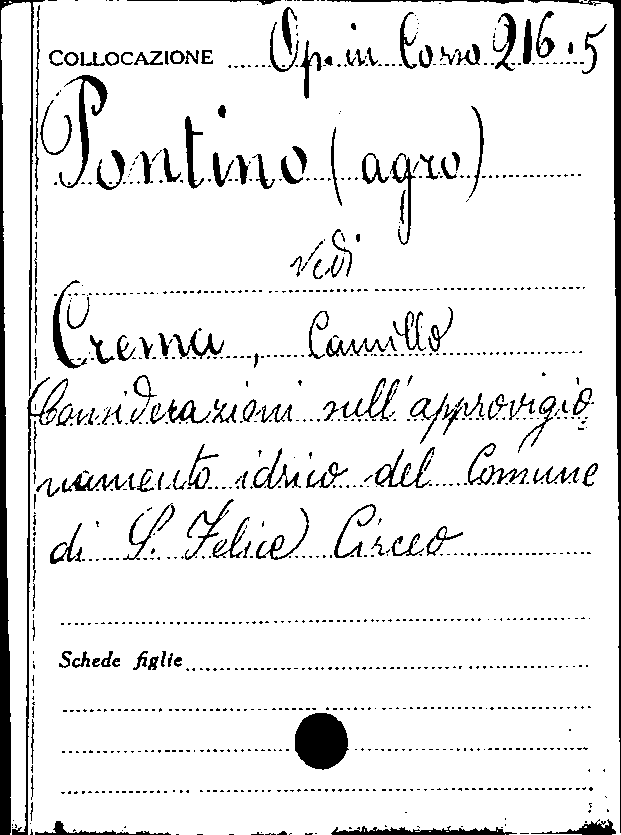 COLLOCAZIONE Op. in Corso 216.5
Pontino (agro)
vedi
Crema, Camillo
Considerazioni sull'approvigio
namento idrico del Comune
di S. Felice Circeo
Schede figlie